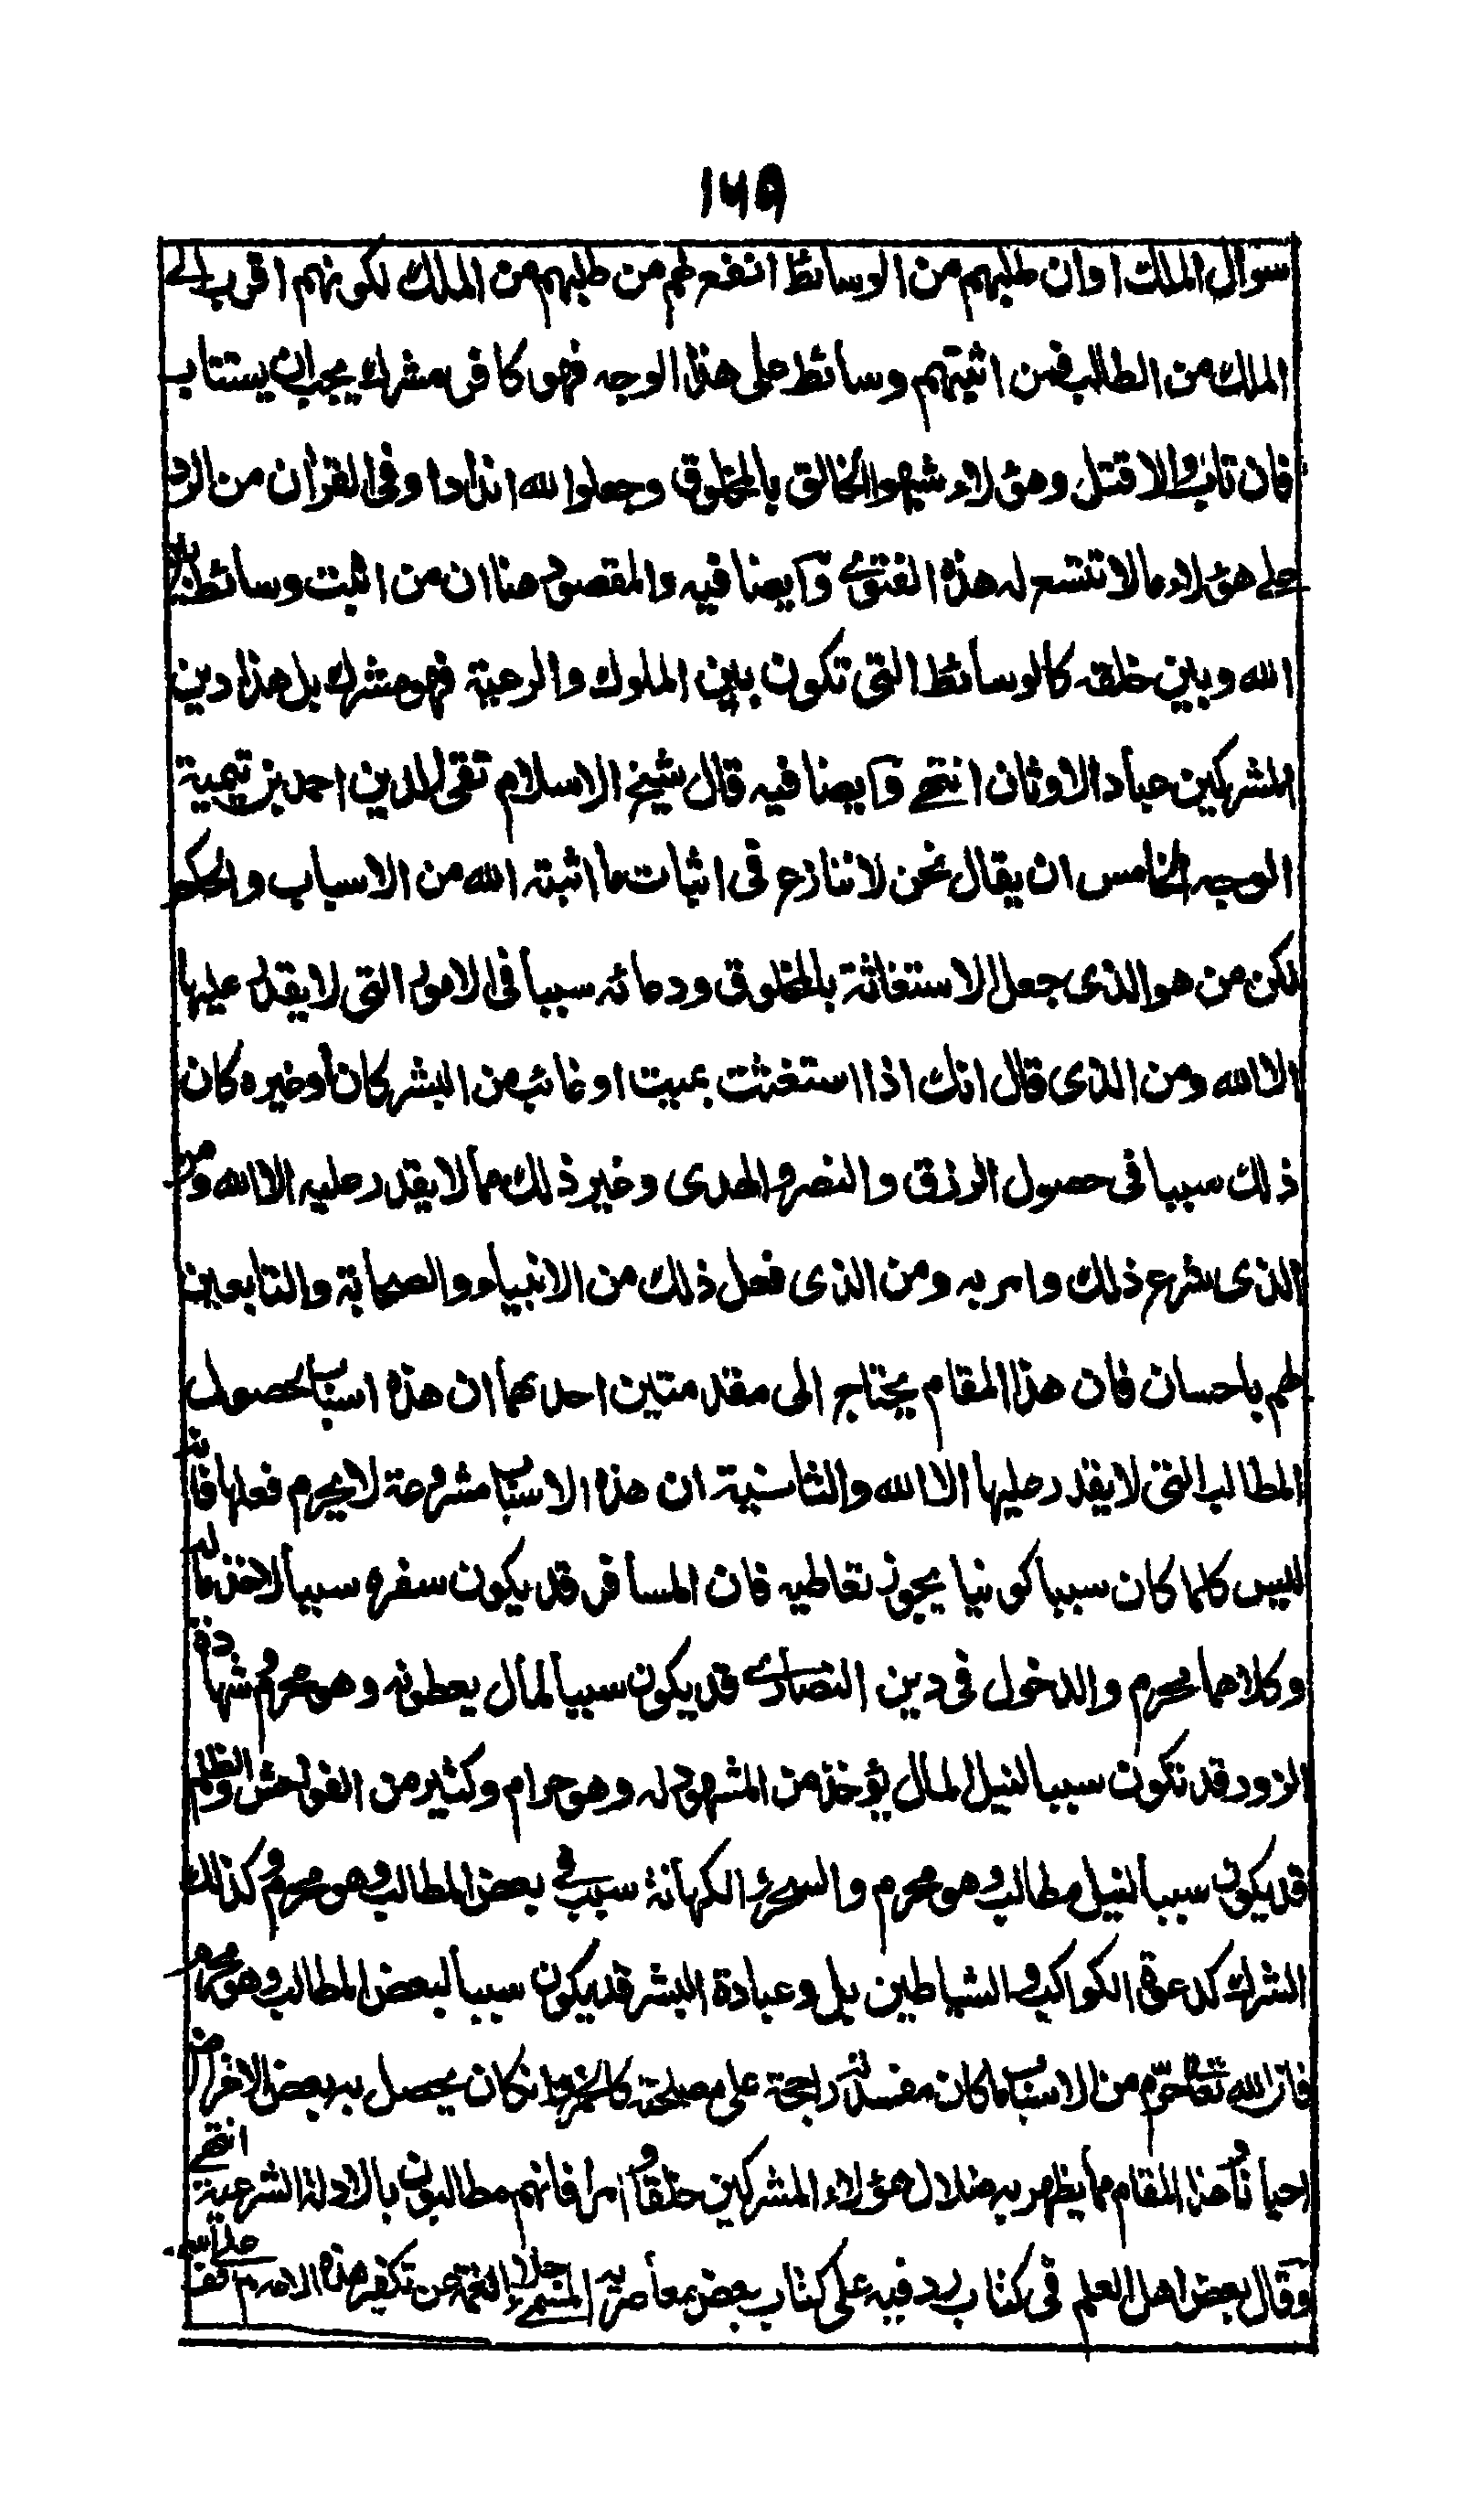 ١٦٥
سوال الملك اوان طلبهم من الوسائط انفع لهم من طلبهم من الملك لكونهم اقرب الى
الملك من الطالب فمن اثبتهم وسائط على هذا الوجه فهو كافر مشرك يجب ان يستتاب
فان تاب والا قتل وهؤلاء شبهوا الخالق بالمخلوق وجعلوا لله اندادا وفي القرآن من الرد
على هؤلاء ما لا تتسع له هذه الفتوى وايضا فيه والمقصود هنا ان من اثبت وسائط بين
الله وبين خلقه كالوسائط التي تكون بين الملوك والرعية فهو مشرك بل هذا دين
المشركين عباد الاوثان انتهى وايضا فيه قال شيخ الاسلام تقي الدين احمد بن تيمية
الوجه الخامس ان يقال نحن لا ننازع في اثبات ما اثبته الله من الاسباب والحكم
لكن من هو الذي جعل الاستغاثة بالمخلوق ودعائه سببا في الامور التي لا يقدر عليها
الا الله ومن الذي قال انك اذا استغثت بميت او غائب من البشر كان او غيره كان
ذلك سببا في حصول الرزق والنصر والهدى وغير ذلك مما لا يقدر عليه الا الله ومن
الذي شرع ذلك وامر به ومن الذي فعل ذلك من الانبياء والصحابة والتابعين
لهم باحسان فان هذا المقام يحتاج الى مقدمتين احدهما ان هذه اسباب لحصول
المطالب التي لا يقدر عليها الا الله والثانية ان هذه الاسباب مشروعة لا يحرم فعلها فانه
ليس كلما كان سببا كونيا يجوز تعاطيه فان المسافر قد يكون سفره سببا لاخذ ماله
وكلاهما محرم والدخول في دين النصارى قد يكون سببا لمال يعطونه وهو محرم وشهادة
الزور قد تكون سببا لنيل المال يؤخذ من المشهود له وهو حرام وكثير من الفواحش والظلم
قد يكون سببا لنيل مطالب وهو محرم والسحر والكهانة سبب في بعض المطالب وهو محرم وكذلك
الشرك كدعوة الكواكب والشياطين بل وعبادة البشر قد يكون سببا لبعض المطالب وهو محرم
فان الله تعالى حرم من الاسباب ما كان مفسدته راجحة على مصلحته كالخمر وان كان يحصل به بعض الاغراض
احيانا وهذا المقام مما يظهر به ضلال هؤلاء المشركين خلقا وامرا فانهم مطالبون بالادلة الشرعية انتهى
وقال بعض اهل العلم في كتاب رد فيه على كتاب بعض معاصريه المسمى جلاء الغمة عن تكفير هذه الامة